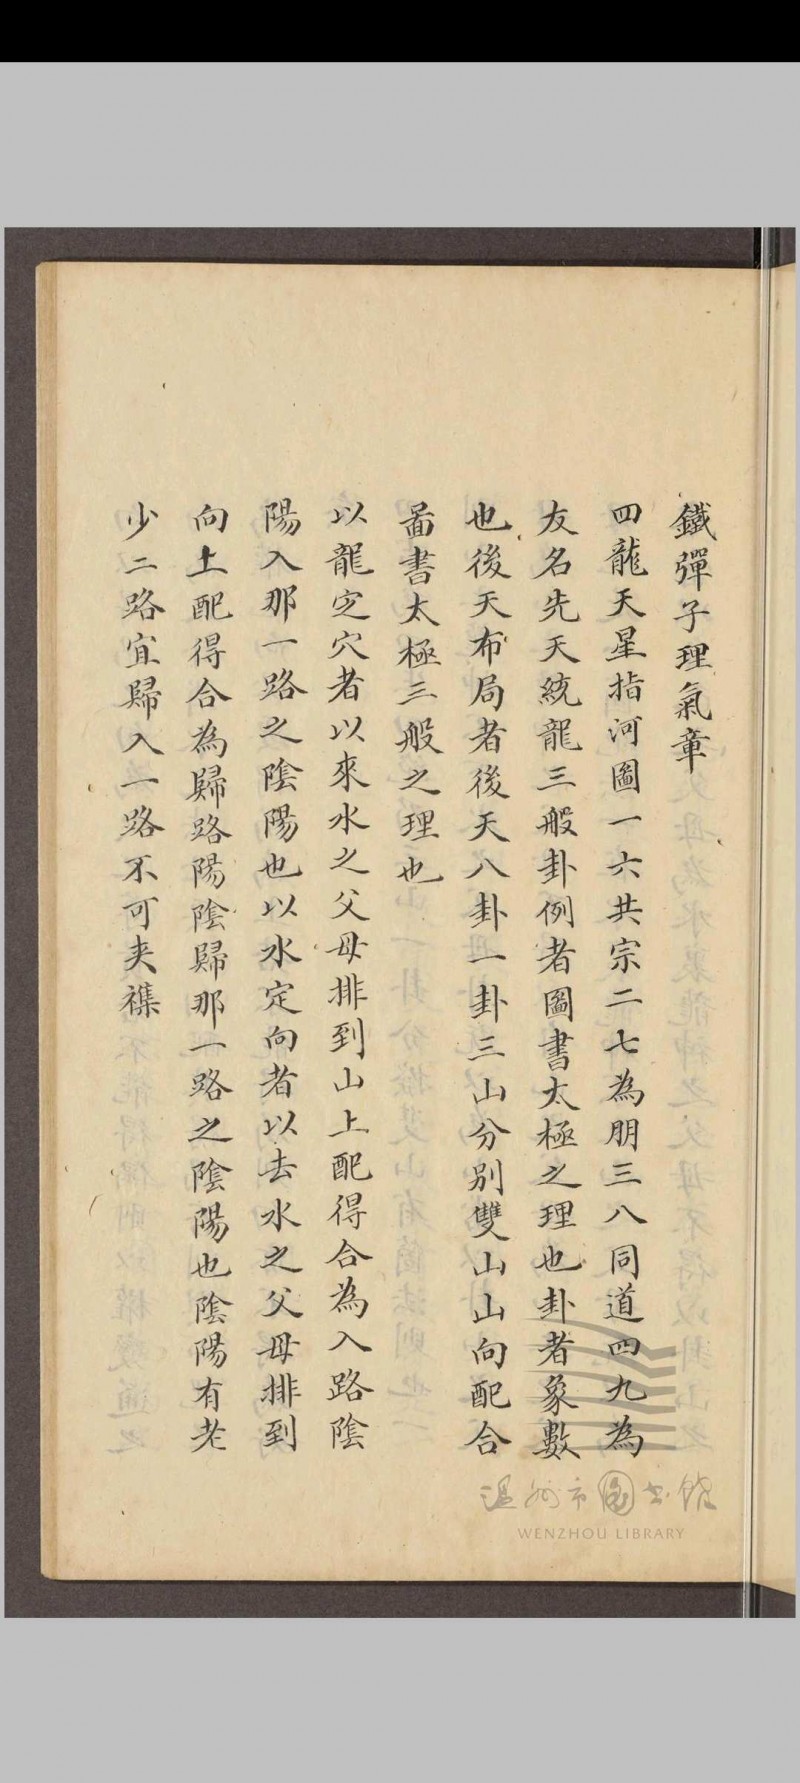 鐵彈子理氣章
四龍天星指河圖一六共宗二七為朋三八同道四九為
友名先天統龍三般卦例者圖書太極之理也卦者象數
也後天布局者後天八卦一卦三山分別雙山山向配合
啚書太極三般之理也
以龍定穴者以來水之父母排到山上配得合為入路陰
陽入那一路之陰陽也以水定向者以去水之父母排到
向上配得合為歸路陽陰歸那一路之陰陽也陰陽有老
少二路宜歸入一路不可夾襍
温州市圖書館
WENZHOU LIBRARY